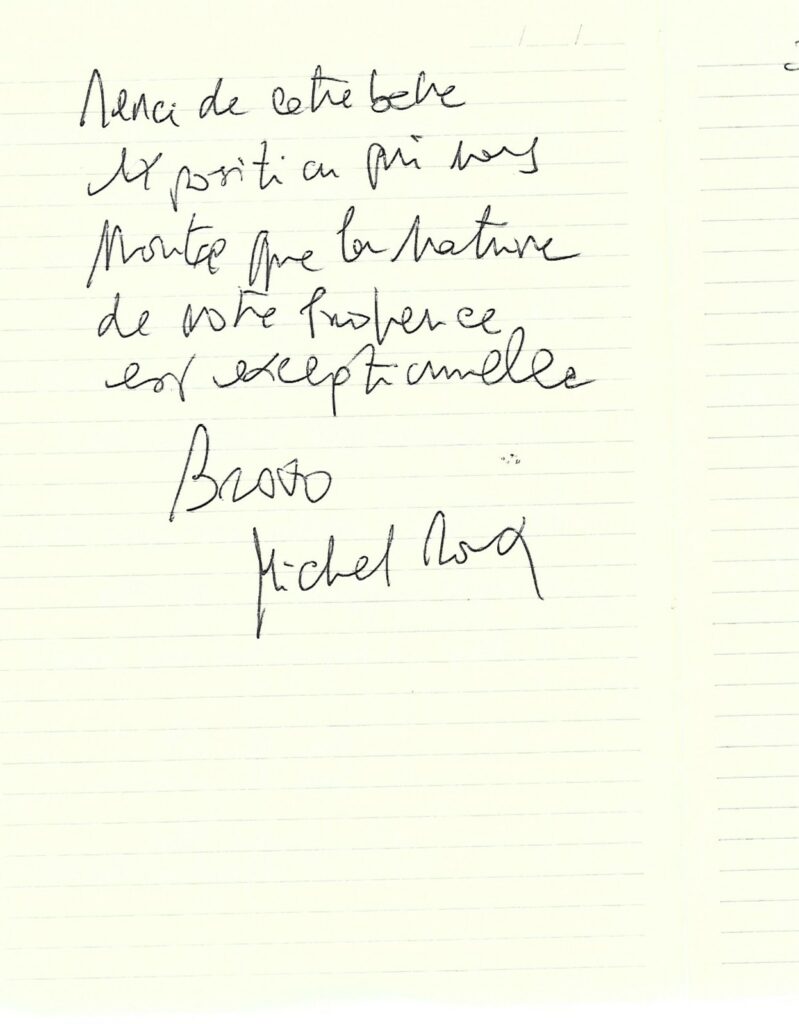 Merci de cette belle
exposition qui nous
montre que la nature
de notre Provence
est exceptionnelle
Bravo
Michel